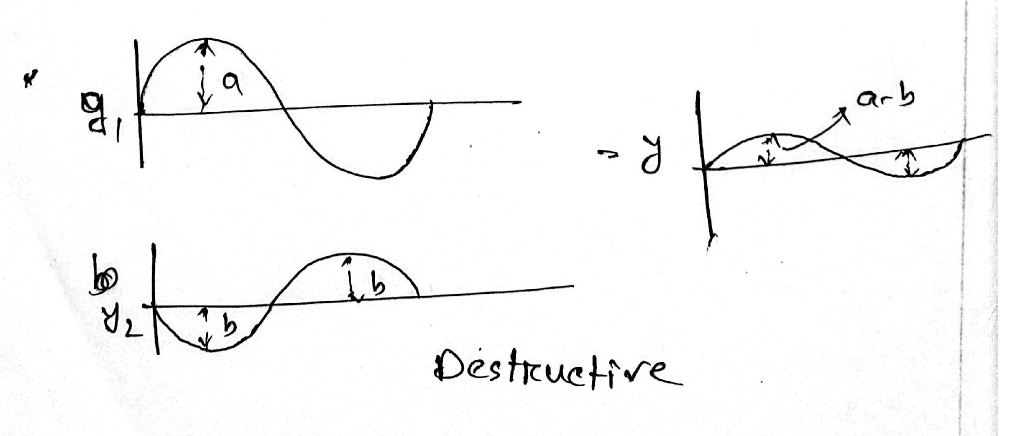 *
y₁
a
= y
a-b
y₂
b
b
Destructive